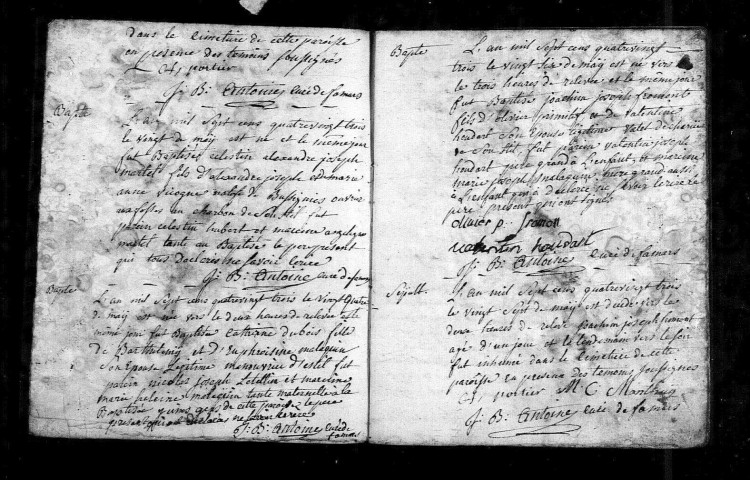 dans le cimetiere de cette paroisse
en presence des temoins soussignés
portier
J: B: Antoine curé de famars
Bapte
L'an mil sept cens quatrevingt trois
le vingt de may est né et le meme jour
fut Baptisé celestin alexandre joseph
martel fils d'alexandre joseph et de marie
anne
un charbon de son stil fut
parin celestin hubert et mareine angelique
martel tante au Baptisé le pere present
qui tous declares ne savoir ecrire
J: B: Antoine curé de famars
Bapte
L'an mil sept cens quatrevingt trois le vingt quatre
de may est née vers le deux heures de relevée et le
meme jour fut Baptisé catherine dubois fille
de Barthelemy et d'Euphroisine malaquin
son epouse legitime menuvrié d'estil fut
parin nicolas joseph Letellier et mareinne
marie malaquin tante maternelle a la
Baptisée gens de cette paroisse le pere
present declarés ne savoir ecrire
J: B: Antoine curé de
famars
Bapte
L'an mil sept cens quatrevingt
trois le vingt six de may est né vers
les trois heures de relevée et le meme jour
fut Baptisé joachim joseph fromont
fils d'olivier et de valentine
houdart son epouse legitime valet de charrue
de son stil fut parin valentin joseph
houdart pere grand a L'enfant et mareinne
marie joseph malaquin mere grand aussi
a L'enfant qui a declaré ne savoir ecrire
pere present ont signés
olivier p. fromon
valentin houdart
J: B: Antoine curé de famars
Sepult.
L'an mil sept cens quatrevingt trois
le vingt sept de may est decedé vers les
deux heures de relevé joachim joseph fromont
agé d'un jour et le lendemain vers le soir
fut inhumé dans le cimetiere de cette
paroisse en presence des temoins soussignés
portier M C
J: B: Antoine curé de famars